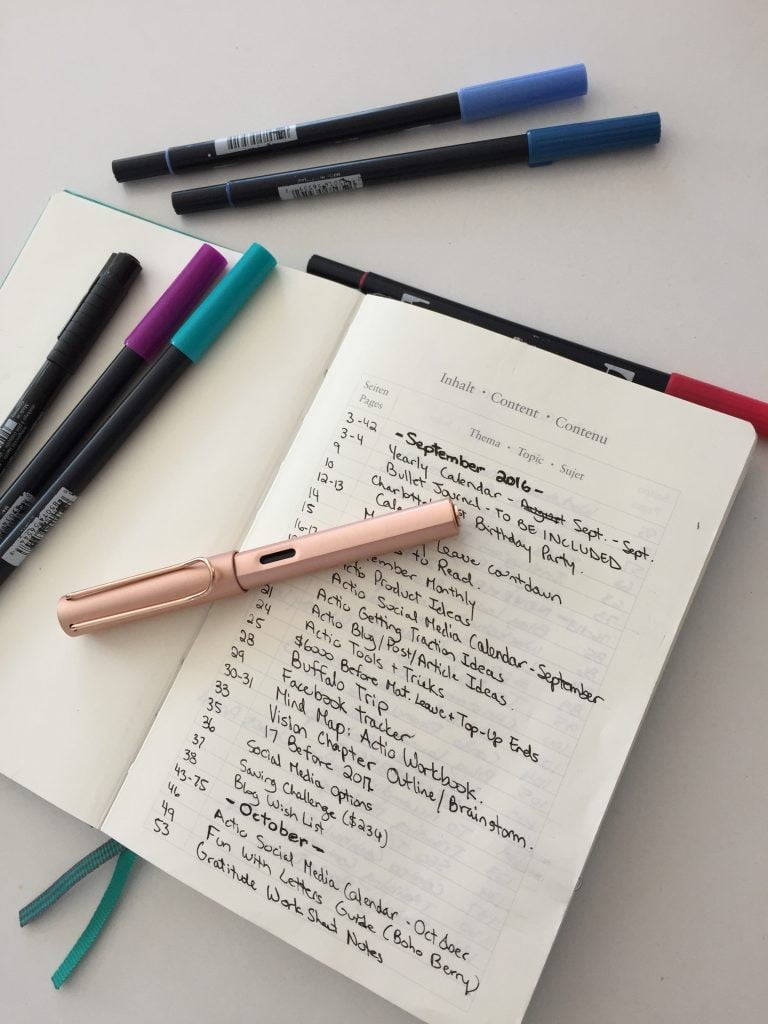 Inhalt · Content · Contenu
Seiten
Pages
Thema · Topic · Sujet
3-42 -September 2016-
3-4 Yearly Calendar - August Sept. - Sept.
9 Bullet Journal - TO BE INCLUDED
10 Birthday Party.
12-13
14 Leave countdown
15 to Read
16-17 Monthly
Actio Product Ideas
Actio Social Media Calendar - September
Actio Getting Traction Ideas
21 Actio Blog/Post/Article Ideas.
24 Actio Tools + Tricks
25 $6000 Before Mat. Leave + Top-Up Ends
28 Buffalo Trip
29 Facebook Tracker
30-31 Mind Map: Actio Workbook.
33 Vision Chapter Outline/Brainstorm.
35 17 Before 2017
36 Social Media Options
37 Saving Challenge ($234)
38 Blog Wish List
43-75 -October-
46 Actio Social Media Calendar - October
49 Fun with Letters Guide (Boho Berry)
53 Gratitude Work Sheet Notes